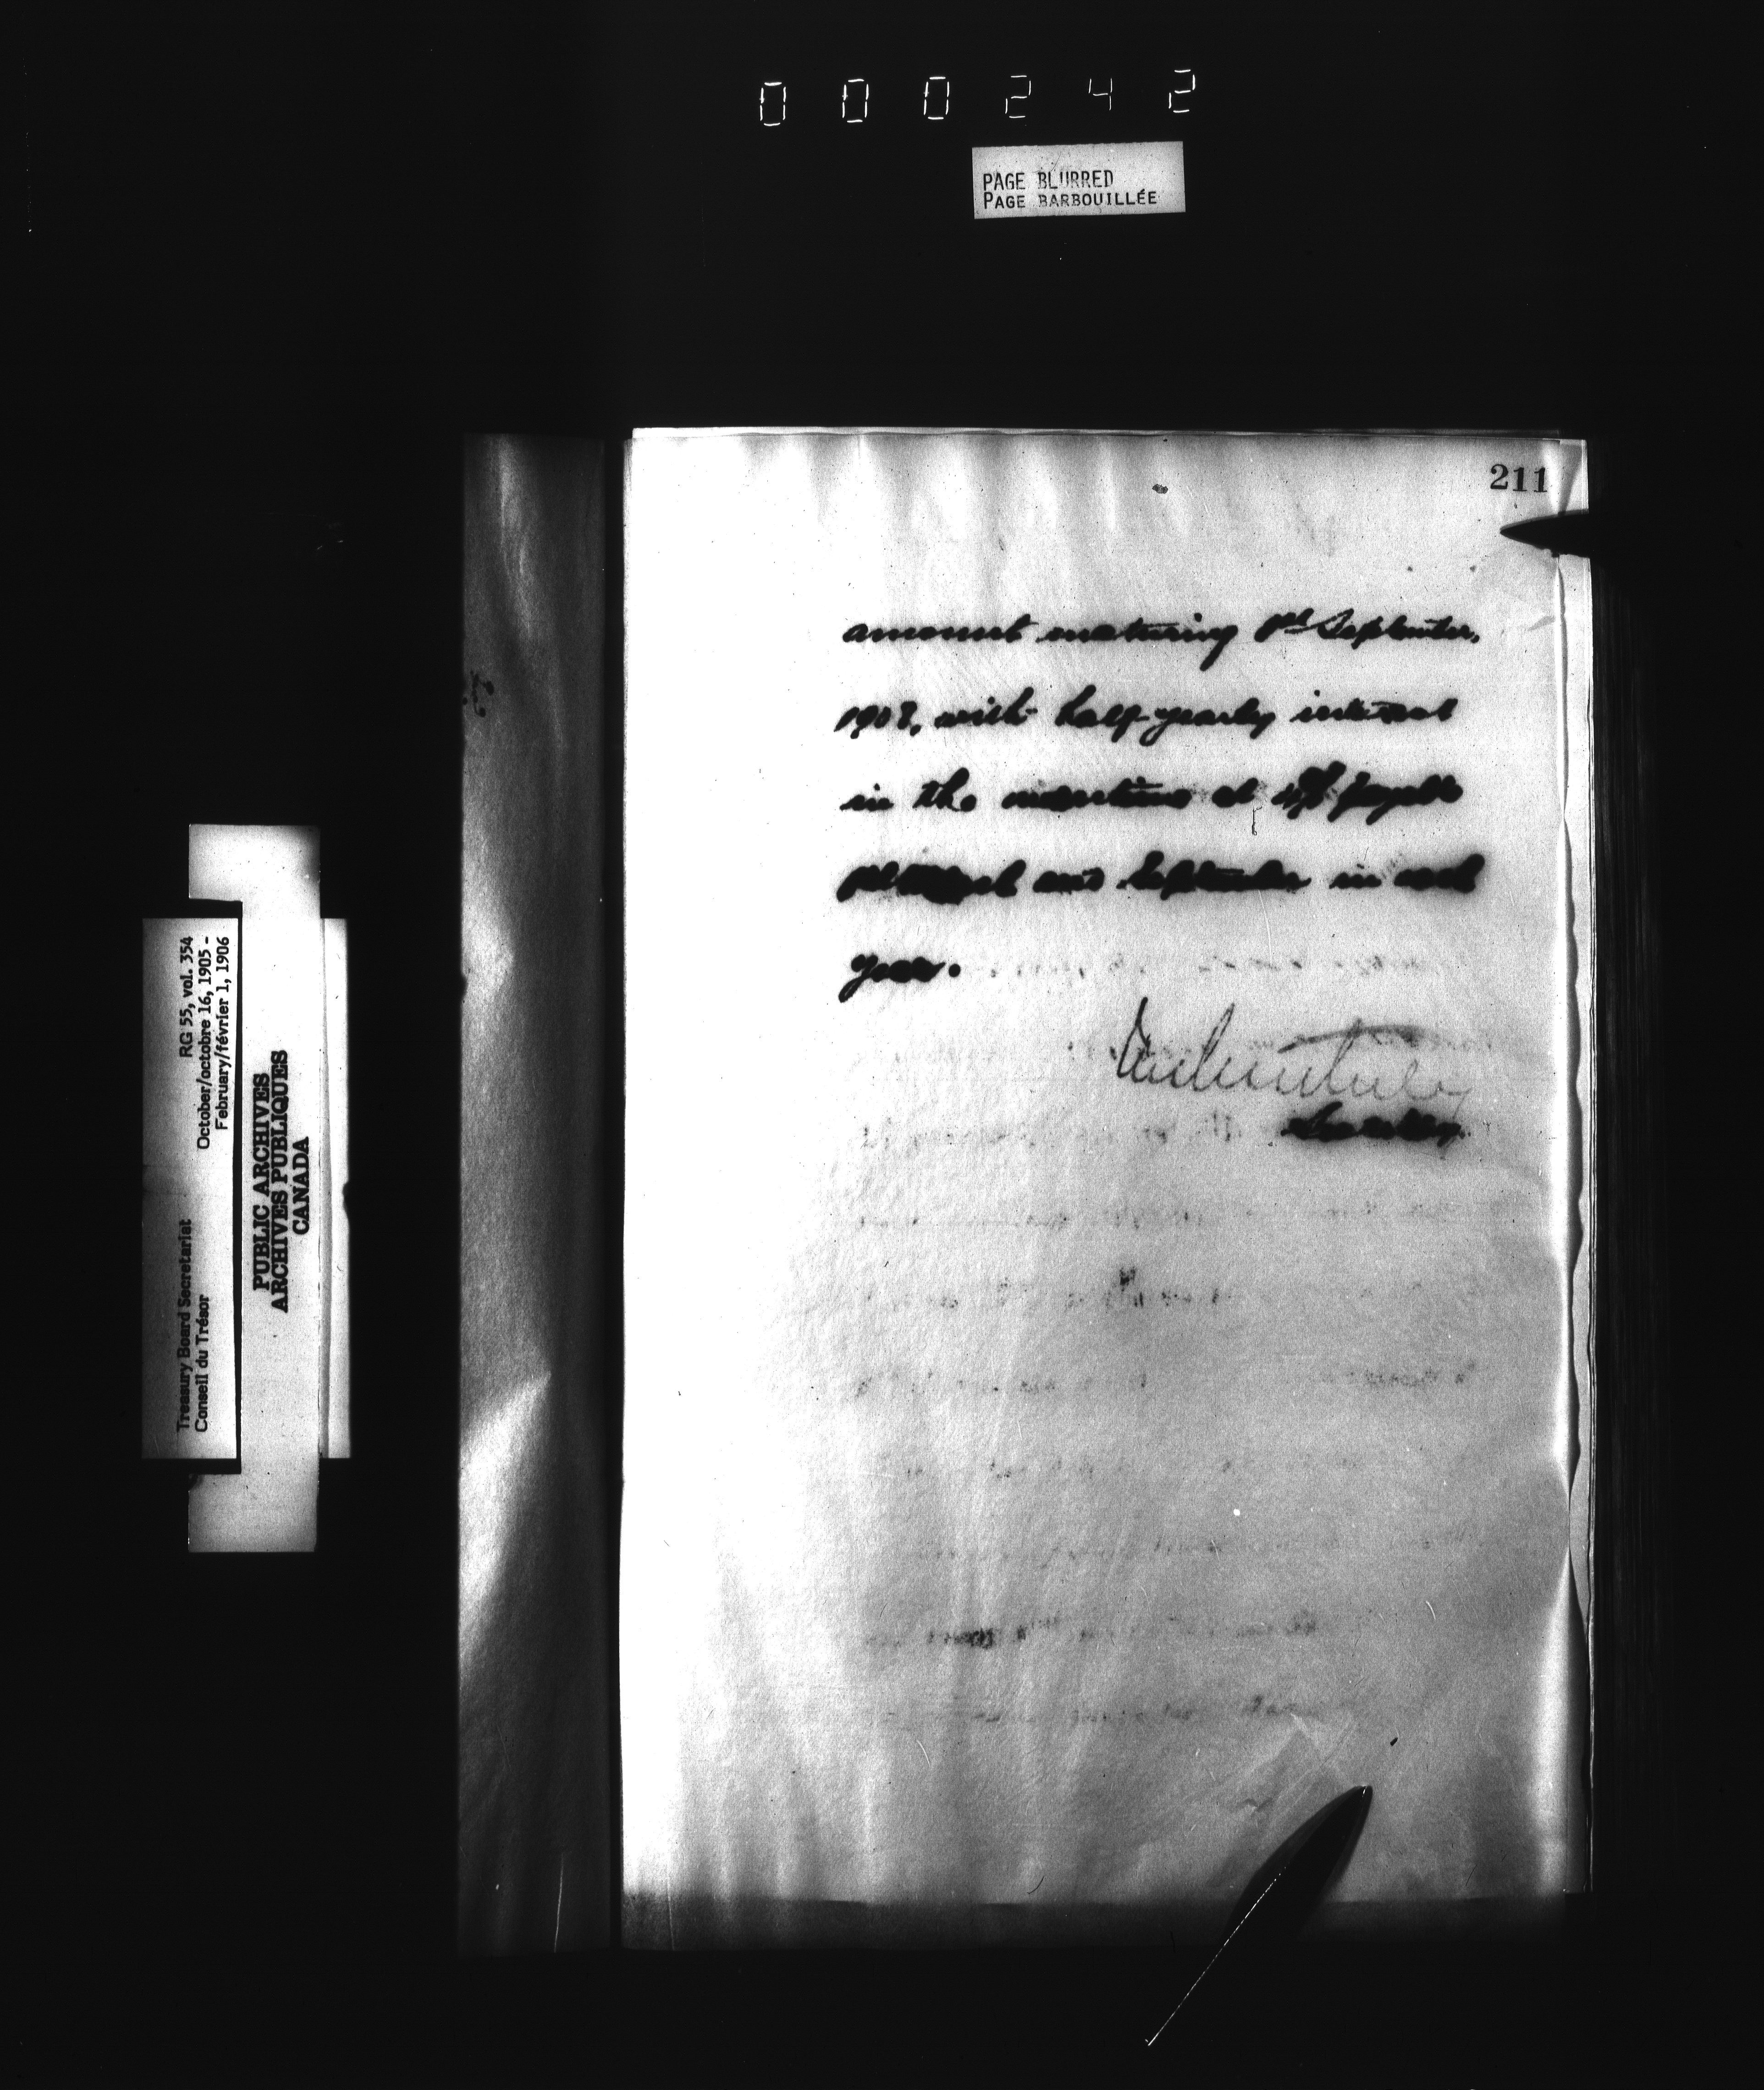 000242
PAGE BLURRED
PAGE BARBOUILLÉE
211
amount maturing 1st September,
1908, with half-yearly interest
in the meantime at payable
1st and September in each
year.
Secretary.
Treasury Board Secretariat RG 55, vol. 354
Conseil du Trésor October/octobre 16, 1905 -
February/février 1, 1906
PUBLIC ARCHIVES
ARCHIVES PUBLIQUES
CANADA